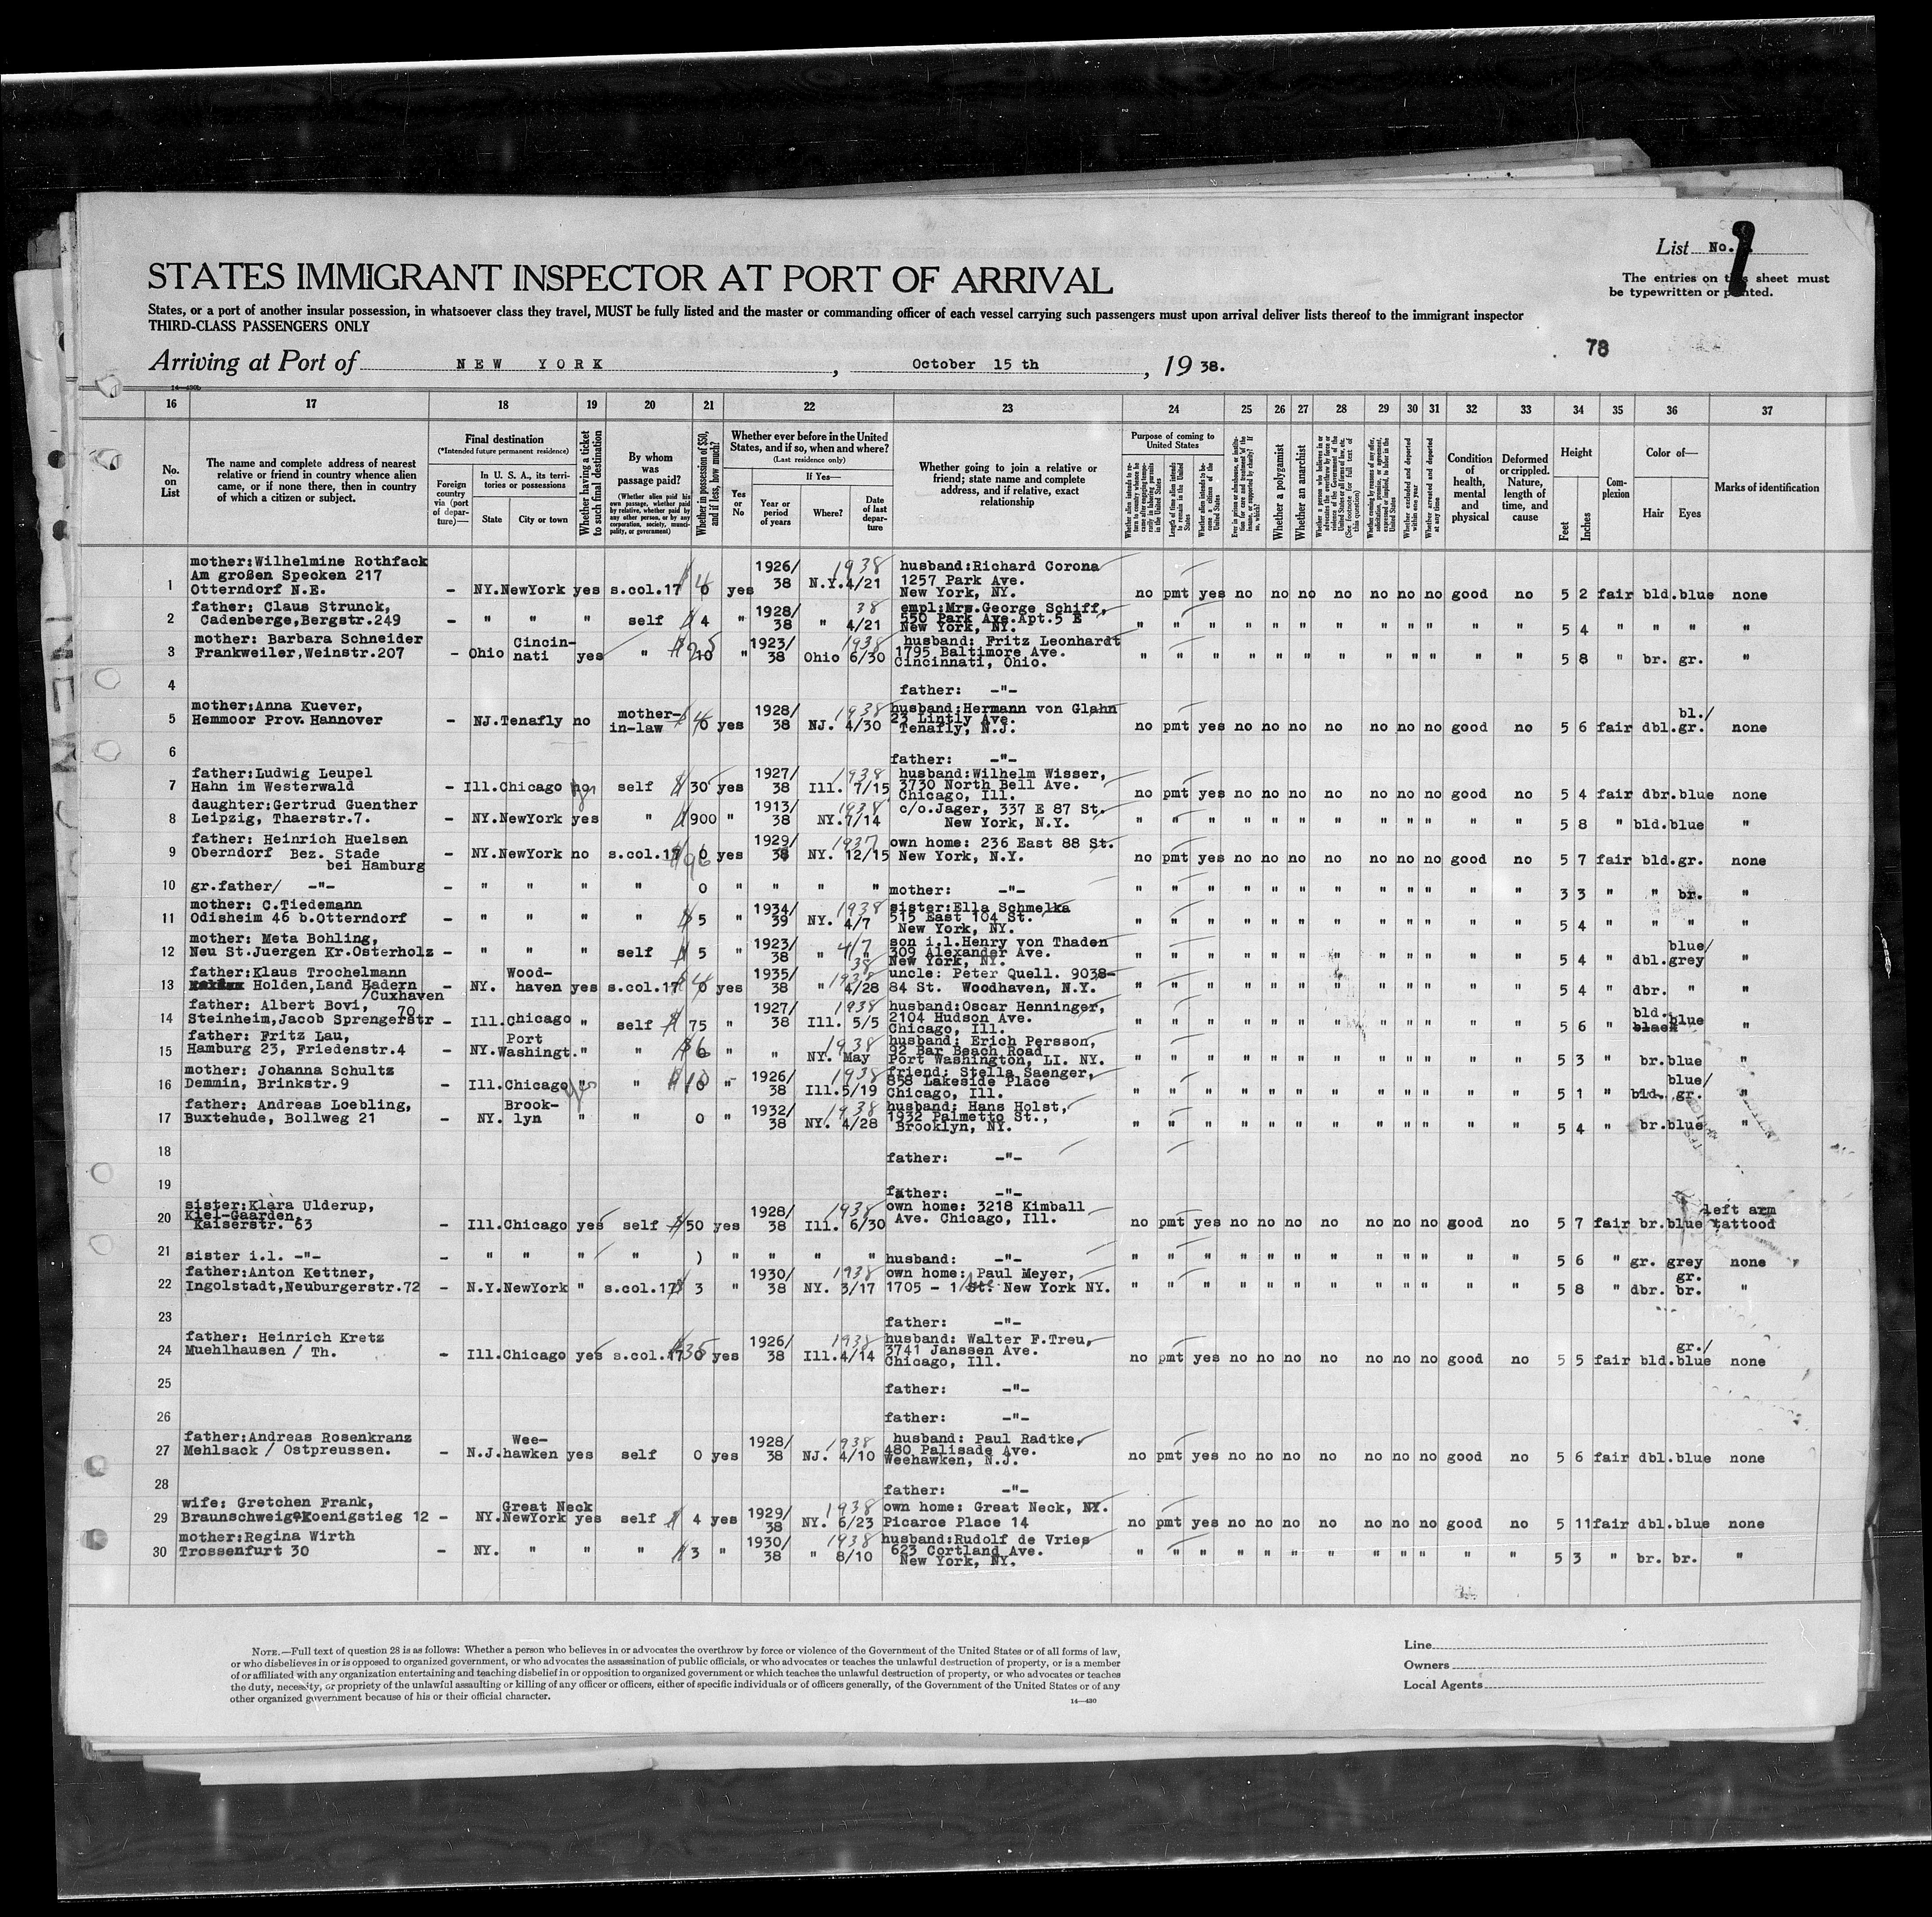 List No.
The entries on this sheet must
be typewritten or printed.
STATES IMMIGRANT INSPECTOR AT PORT OF ARRIVAL
States, or a port of another insular possession, in whatsoever class they travel, MUST be fully listed and the master or commanding officer of each vessel carrying such passengers must upon arrival deliver lists thereof to the immigrant inspector
THIRD-CLASS PASSENGERS ONLY
78
Arriving at Port of NEW YORK, October 15 th, 19 38.
14—430b
16 17 18 19 20 21 22 23 24 25 26 27 28 29 30 31 32 33 34 35 36 37
No. on List
The name and complete address of nearest relative or friend in country whence alien came, or if none there, then in country of which a citizen or subject.
Final destination
(*Intended future permanent residence)
Foreign country via (port of departure)—
In U. S. A., its territories or possessions
State City or town
Whether having a ticket to such final destination
By whom was passage paid?
(Whether alien paid his own passage, whether paid by relative, whether paid by any other person, or by any corporation, society, municipality, or government)
Whether in possession of $50, and if less, how much?
Whether ever before in the United States, and if so, when and where?
(Last residence only)
Yes or No
If Yes—
Year or period of years Where? Date of last departure
Whether going to join a relative or friend; state name and complete address, and if relative, exact relationship
Purpose of coming to United States
Whether alien intends to return to country whence he came after engaging temporarily in laboring pursuits in the United States
Length of time alien intends to remain in the United States
Whether alien intends to become a citizen of the United States
Ever in prison or almshouse, or institution for care and treatment of the insane, or supported by charity? If so, which?
Whether a polygamist
Whether an anarchist
Whether coming by reason of any offer, solicitation, promise, or agreement, expressed or implied, to labor in the United States
Whether excluded and deported within one year
Whether arrested and deported at any time
Condition of health, mental and physical
Deformed or crippled. Nature, length of time, and cause
Height
Feet Inches
Complexion
Color of—
Hair Eyes
Marks of identification
1 mother:Wilhelmine Rothfack
Am großen Specken 217
Otterndorf N.E. – NY. NewYork yes s.col.17 0 yes 1926/38 N.Y. 1938 4/21 husband:Richard Corona
1257 Park Ave.
New York, NY. no pmt yes no no no no no no no good no 5 2 fair bld. blue none
2 father: Claus Strunck,
Cadenberge,Bergstr.249 – " " " self $ 4 " 1928/38 " 38 4/21 empl:Mrs.George Schiff,
550 Park Ave.Apt.5 E
New York, NY. " " " " " " " " " " " " 5 4 " " " "
3 mother: Barbara Schneider
Frankweiler,Weinstr.207 – Ohio Cincinnati yes " " 1923/38 Ohio 1938 6/30 husband: Fritz Leonhardt
1795 Baltimore Ave.
Cincinnati, Ohio. " " " " " " " " " " " " 5 8 " br. gr. "
4 father: –"–
5 mother:Anna Kuever,
Hemmoor Prov. Hannover – NJ. Tenafly no mother-in-law 0 yes 1928/38 NJ. 1938 4/30 husband:Hermann von Glahn
23 Lintly Ave.
Tenafly, N.J. no pmt yes no no no no no no no good no 5 6 fair dbl. bl./gr. none
6 father: –"–
7 father:Ludwig Leupel
Hahn im Westerwald – Ill. Chicago no self $ 30 yes 1927/38 Ill. 1938 7/15 husband:Wilhelm Wisser,
3730 North Bell Ave.
Chicago, Ill. no pmt yes no no no no no no no good no 5 4 fair dbr. blue none
8 daughter:Gertrud Guenther
Leipzig, Thaerstr.7. – NY. NewYork yes " $ 900 " 1913/38 NY. 1938 7/14 c/o.Jager, 337 E 87 St.
New York, N.Y. " " " " " " " " " " " " 5 8 " bld. blue "
9 father: Heinrich Huelsen
Oberndorf Bez. Stade
bei Hamburg – NY. NewYork no s.col.17 0 yes 1929/38 NY. 1937 12/15 own home: 236 East 88 St.
New York, N.Y. no pmt yes no no no no no no no good no 5 7 fair bld. gr. none
10 gr.father/ –"– – " " " " 0 " " " " mother: –"– " " " " " " " " " " " " 3 3 " " br. "
11 mother: C.Tiedemann
Odisheim 46 b.Otterndorf – " " " " $ 5 " 1934/39 NY. 1938 4/7 sister:Ella Schmelka
515 East 104 St.
New York, NY. " " " " " " " " " " " " 5 4 " " " "
12 mother: Meta Bohling,
Neu St.Juergen Kr.Osterholz – " " " self $ 5 " 1923/38 " 4/7 38 son i.l.Henry von Thaden
309 Alexander Ave.
New York, NY. " " " " " " " " " " " " 5 4 " dbl. blue/grey "
13 father:Klaus Trochelmann
Holden,Land Hadern
/Cuxhaven – NY. Woodhaven yes s.col.17 0 yes 1935/38 " 1938 4/28 uncle: Peter Quell. 9038-
84 St. Woodhaven, N.Y. " " " " " " " " " " " " 5 4 dbr. " "
14 father: Albert Bovi, 70
Steinheim,Jacob Sprengerstr – Ill. Chicago " self $ 75 " 1927/38 Ill. 1938 5/5 husband:Oscar Henninger,
2104 Hudson Ave.
Chicago, Ill. " " " " " " " " " " " " 5 6 " bld. black blue "
15 father: Fritz Lau,
Hamburg 23, Friedenstr.4 – NY. Port Washingt. " " $ 6 " " NY. 1938 May husband: Erich Persson,
92 Bar Beach Road
Port Washington, LI. NY. " " " " " " " " " " " " 5 3 " br. blue "
16 mother: Johanna Schultz
Demmin, Brinkstr.9 – Ill. Chicago " yes " $ 10 " 1926/38 Ill. 1938 5/19 friend: Stella Saenger,
858 Lakeside Place
Chicago, Ill. " " " " " " " " " " " " 5 1 " bld. blue/gr. "
17 father: Andreas Loebling,
Buxtehude, Bollweg 21 – NY. Brooklyn " " 0 " 1932/38 NY. 1938 4/28 husband: Hans Holst,
1932 Palmetto St.,
Brooklyn, NY. " " " " " " " " " " " " 5 4 " br. blue "
18 father: –"–
19 father: –"–
20 sister:Klara Ulderup,
Kiel-Gaarden,
Kaiserstr. 63 – Ill. Chicago yes self $ 50 yes 1928/38 Ill. 1938 6/30 own home: 3218 Kimball
Ave. Chicago, Ill. no pmt yes no no no no no no no good no 5 7 fair br. blue left arm tattood
21 sister i.l. –"– – " " " " ) " " " " husband: –"– " " " " " " " " " " " " 5 6 " gr. grey none
22 father:Anton Kettner,
Ingolstadt,Neuburgerstr.72 – N.Y. NewYork " s.col.17 $ 3 " 1930/38 NY. 1938 3/17 own home: Paul Meyer,
1705 – 1 St. Ave New York NY. " " " " " " " " " " " " 5 8 " dbr. gr. br. "
23 father: –"–
24 father: Heinrich Kretz
Muehlhausen / Th. – Ill. Chicago yes s.col.17 $35 0 yes 1926/38 Ill. 1938 4/14 husband: Walter F.Treu,
3741 Janssen Ave.
Chicago, Ill. no pmt yes no no no no no no no good no 5 5 fair bld. gr./blue none
25 father: –"–
26 father: –"–
27 father:Andreas Rosenkranz
Mehlsack / Ostpreussen. – N.J. Weehawken yes self 0 yes 1928/38 NJ. 1938 4/10 husband: Paul Radtke,
480 Palisade Ave.
Weehawken, N.J. no pmt yes no no no no no no no good no 5 6 fair dbl. blue none
28 father: –"–
29 wife: Gretchen Frank,
Braunschweig, Koenigstieg 12 – NY. Great Neck NewYork yes self $ 4 yes 1929/38 NY. 1938 6/23 own home: Great Neck, NY.
Picarce Place 14 no pmt yes no no no no no no no good no 5 11 fair dbl. blue none
30 mother:Regina Wirth
Trossenfurt 30 – NY. " " " $ 3 " 1930/38 " 1938 8/10 husband:Rudolf de Vries
623 Cortland Ave.
New York, NY. " " " " " " " " " " " " 5 3 " br. br. "
NOTE.—Full text of question 28 is as follows: Whether a person who believes in or advocates the overthrow by force or violence of the Government of the United States or of all forms of law,
or who disbelieves in or is opposed to organized government, or who advocates the assassination of public officials, or who advocates or teaches the unlawful destruction of property, or is a member
of or affiliated with any organization entertaining and teaching disbelief in or opposition to organized government or which teaches the unlawful destruction of property, or who advocates or teaches
the duty, necessity, or propriety of the unlawful assaulting or killing of any officer or officers, either of specific individuals or of officers generally, of the Government of the United States or of any
other organized government because of his or their official character.
14—430
Line
Owners
Local Agents